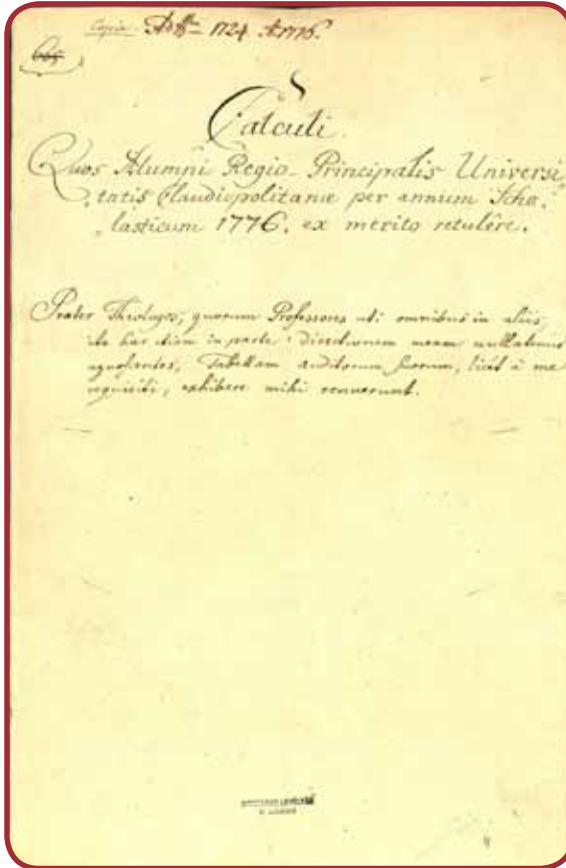 Copia. Ad № 1724 A 1776.
Calculi
Quos Alumni Regio-Principalis Universi-
tatis Claudiopolitanæ per annum Scho-
lasticum 1776. ex merito retulêre.
Præter Theologos, quorum Professores uti omnibus in aliis,
ita hac etiam in parte Directionem meam nullatenus
agnoscentes, Tabellam Auditorum suorum, licet à me
requisiti, exhibere mihi renuerunt.
ORSZÁGOS LEVÉLTÁR